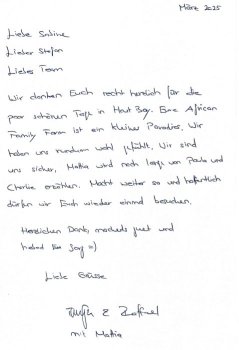 März 2025
Liebe Sabine
Lieber Stefan
Liebes Team
Wir danken Euch recht herzlich für die
paar schönen Tage in Hout Bay. Eure African
Family Farm ist ein kleines Paradies. Wir
haben uns rundum wohl gefühlt. Wir sind
uns sicher, Mattia wird noch lange von Paula und
Charlie erzählen. Macht weiter so und hoffentlich
dürfen wir Euch wieder einmal besuchen.
Herzlichen Dank, macheds guet und
hebed Sorg =)
Liebe Grüsse
&
mit Mattia